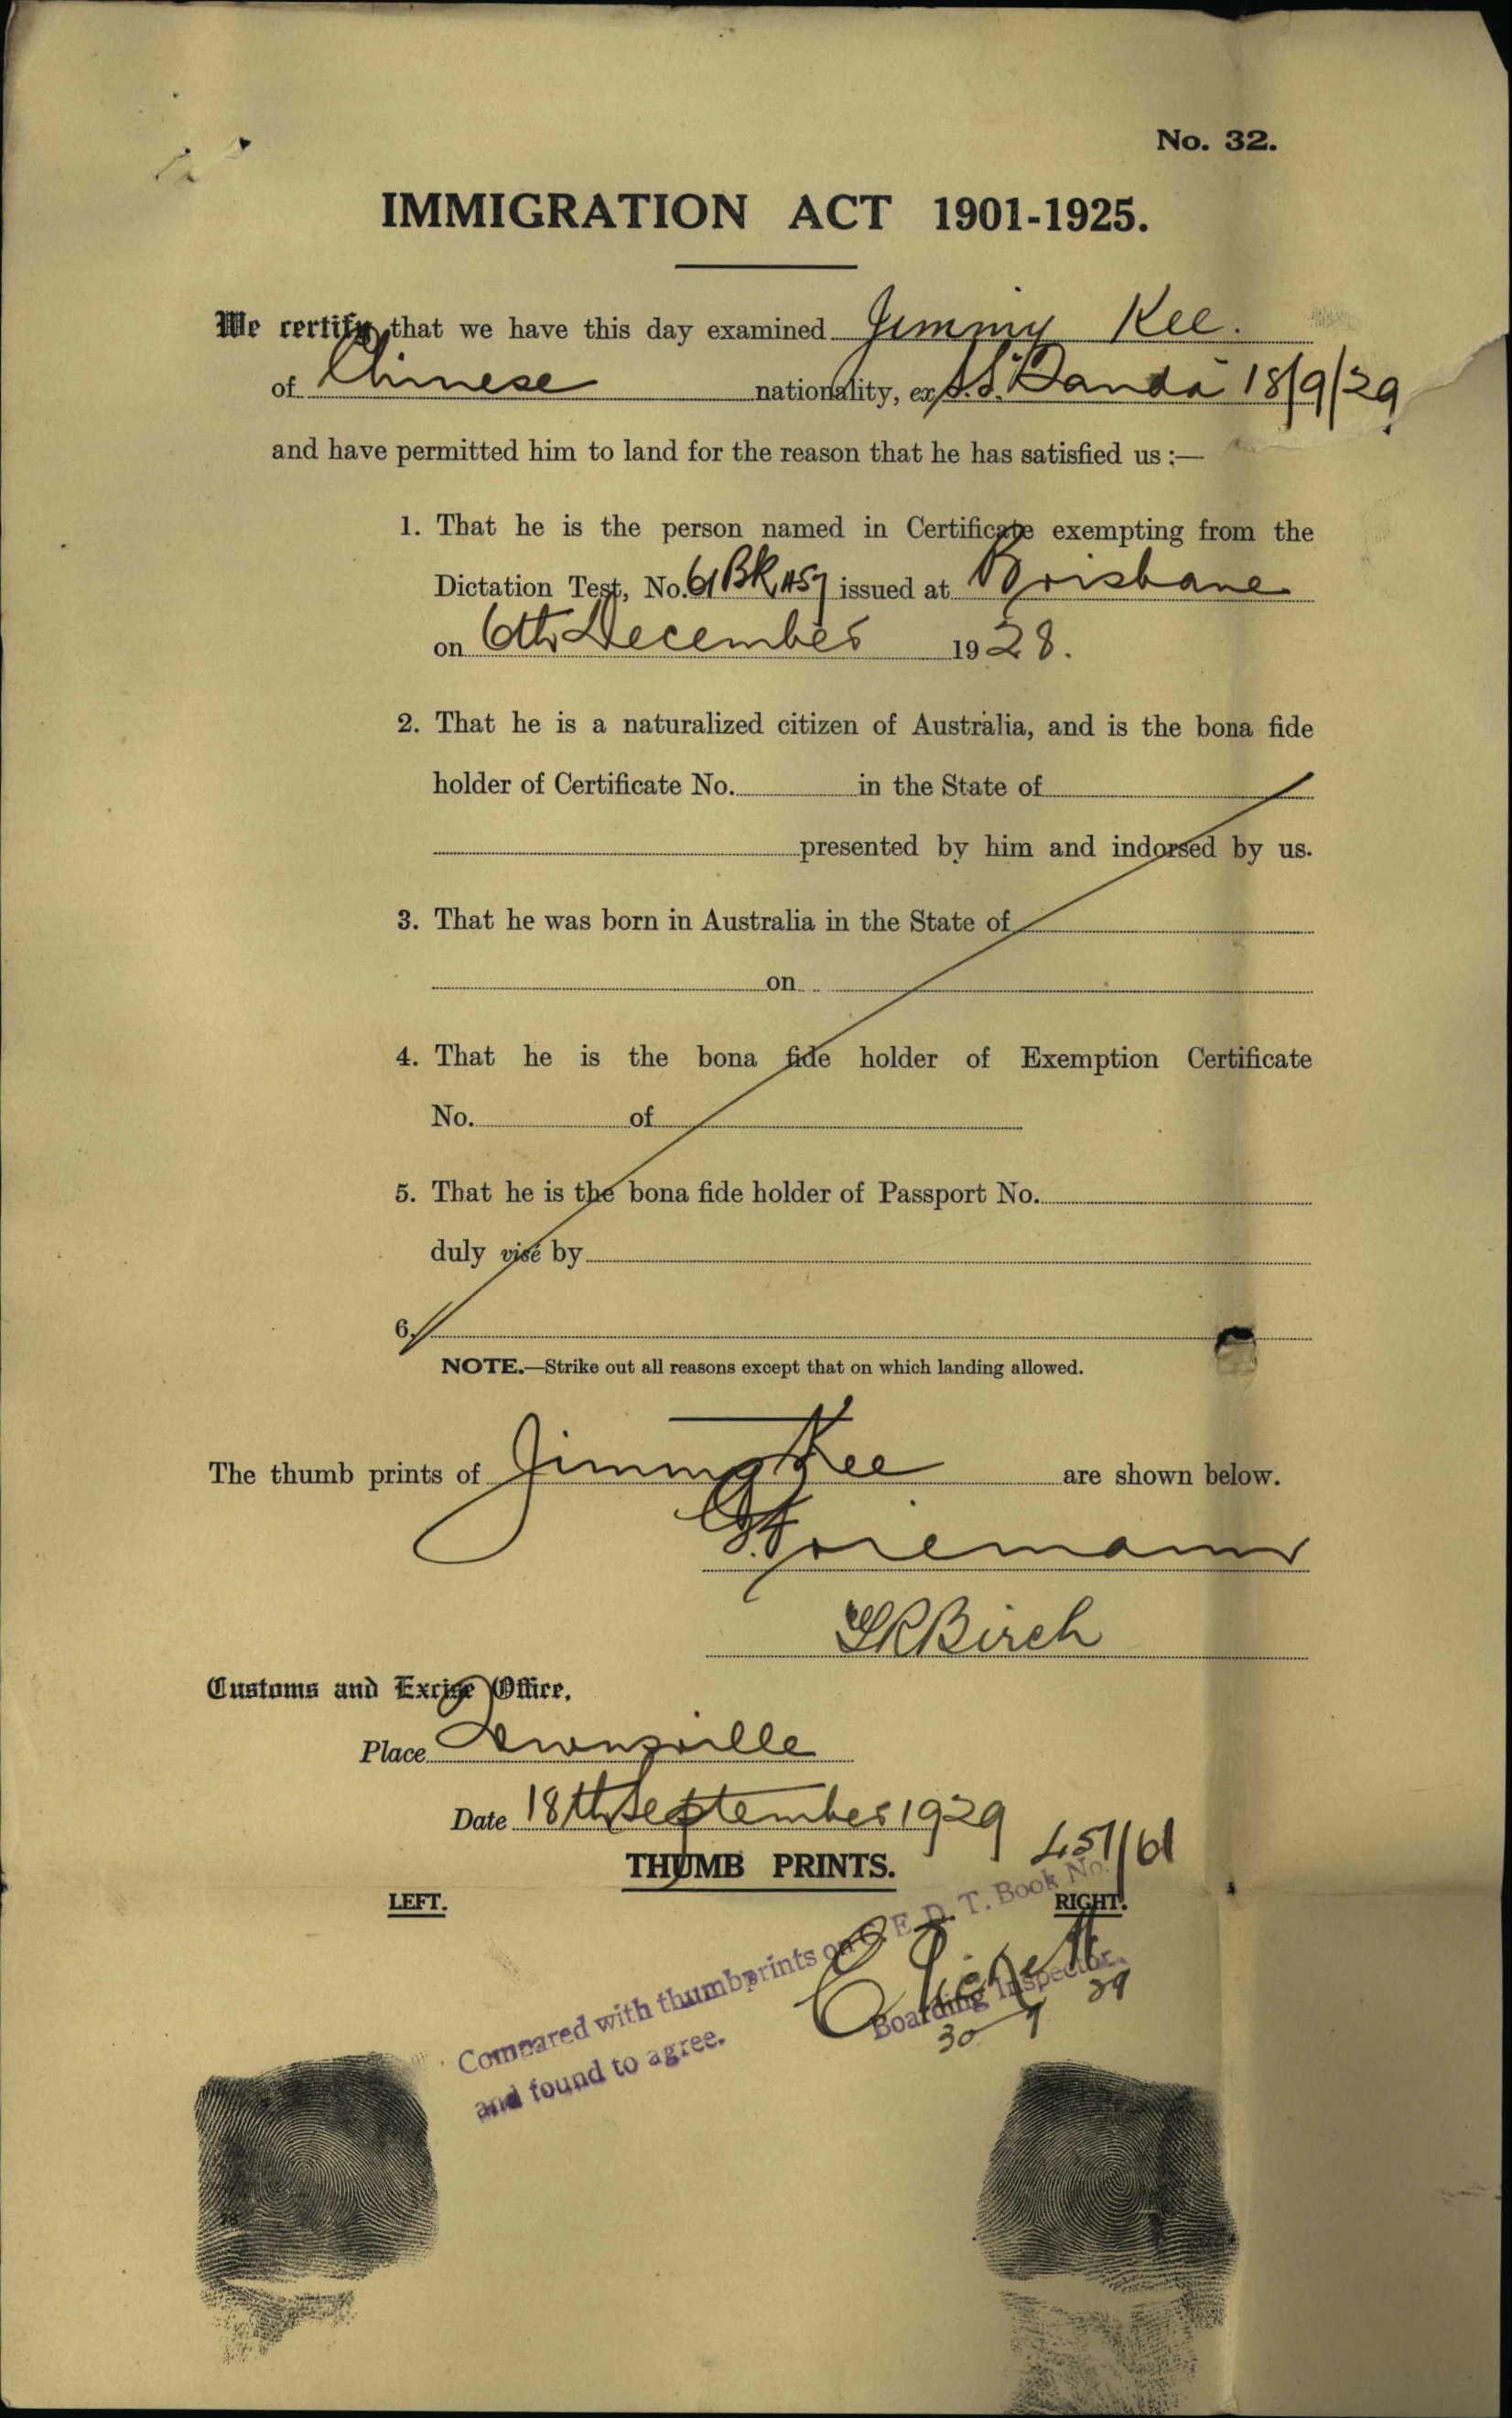 No. 32.
IMMIGRATION ACT 1901-1925.
We certify that we have this day examined Jimmy Kee.
of Chinese nationality, ex S.S. "Tanda" 18/9/29
and have permitted him to land for the reason that he has satisfied us :—
1. That he is the person named in Certificate exempting from the
Dictation Test, No. 61 BK 457 issued at Brisbane
on 6th December 1928.
2. That he is a naturalized citizen of Australia, and is the bona fide
holder of Certificate No. in the State of
presented by him and indorsed by us.
3. That he was born in Australia in the State of
on
4. That he is the bona fide holder of Exemption Certificate
No. of
5. That he is the bona fide holder of Passport No.
duly visé by
6.
NOTE.—Strike out all reasons except that on which landing allowed.
The thumb prints of Jimmy Kee are shown below.
SRBirch
Customs and Excise Office,
Place Townsville
Date 18th September 1929
THUMB PRINTS.
457/61
LEFT.
RIGHT.
Compared with thumbprints on C. E. D. T. Book No.
and found to agree.
Boarding Inspector.
30 9 29